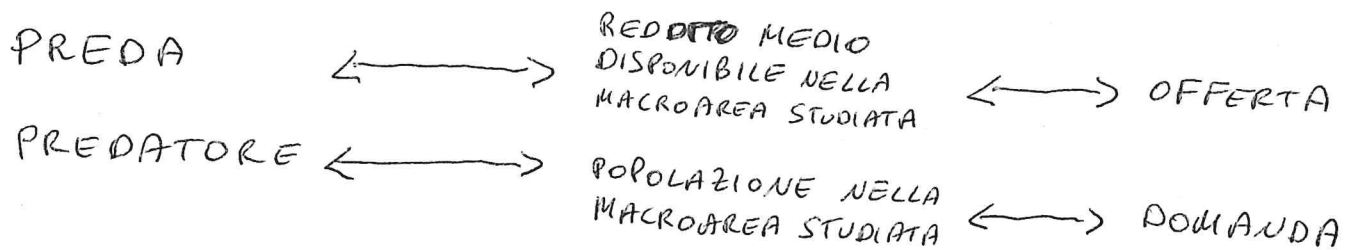 PREDA
REDDITO MEDIO
DISPONIBILE NELLA
MACROAREA STUDIATA
OFFERTA
PREDATORE
POPOLAZIONE NELLA
MACROAREA STUDIATA
DOMANDA